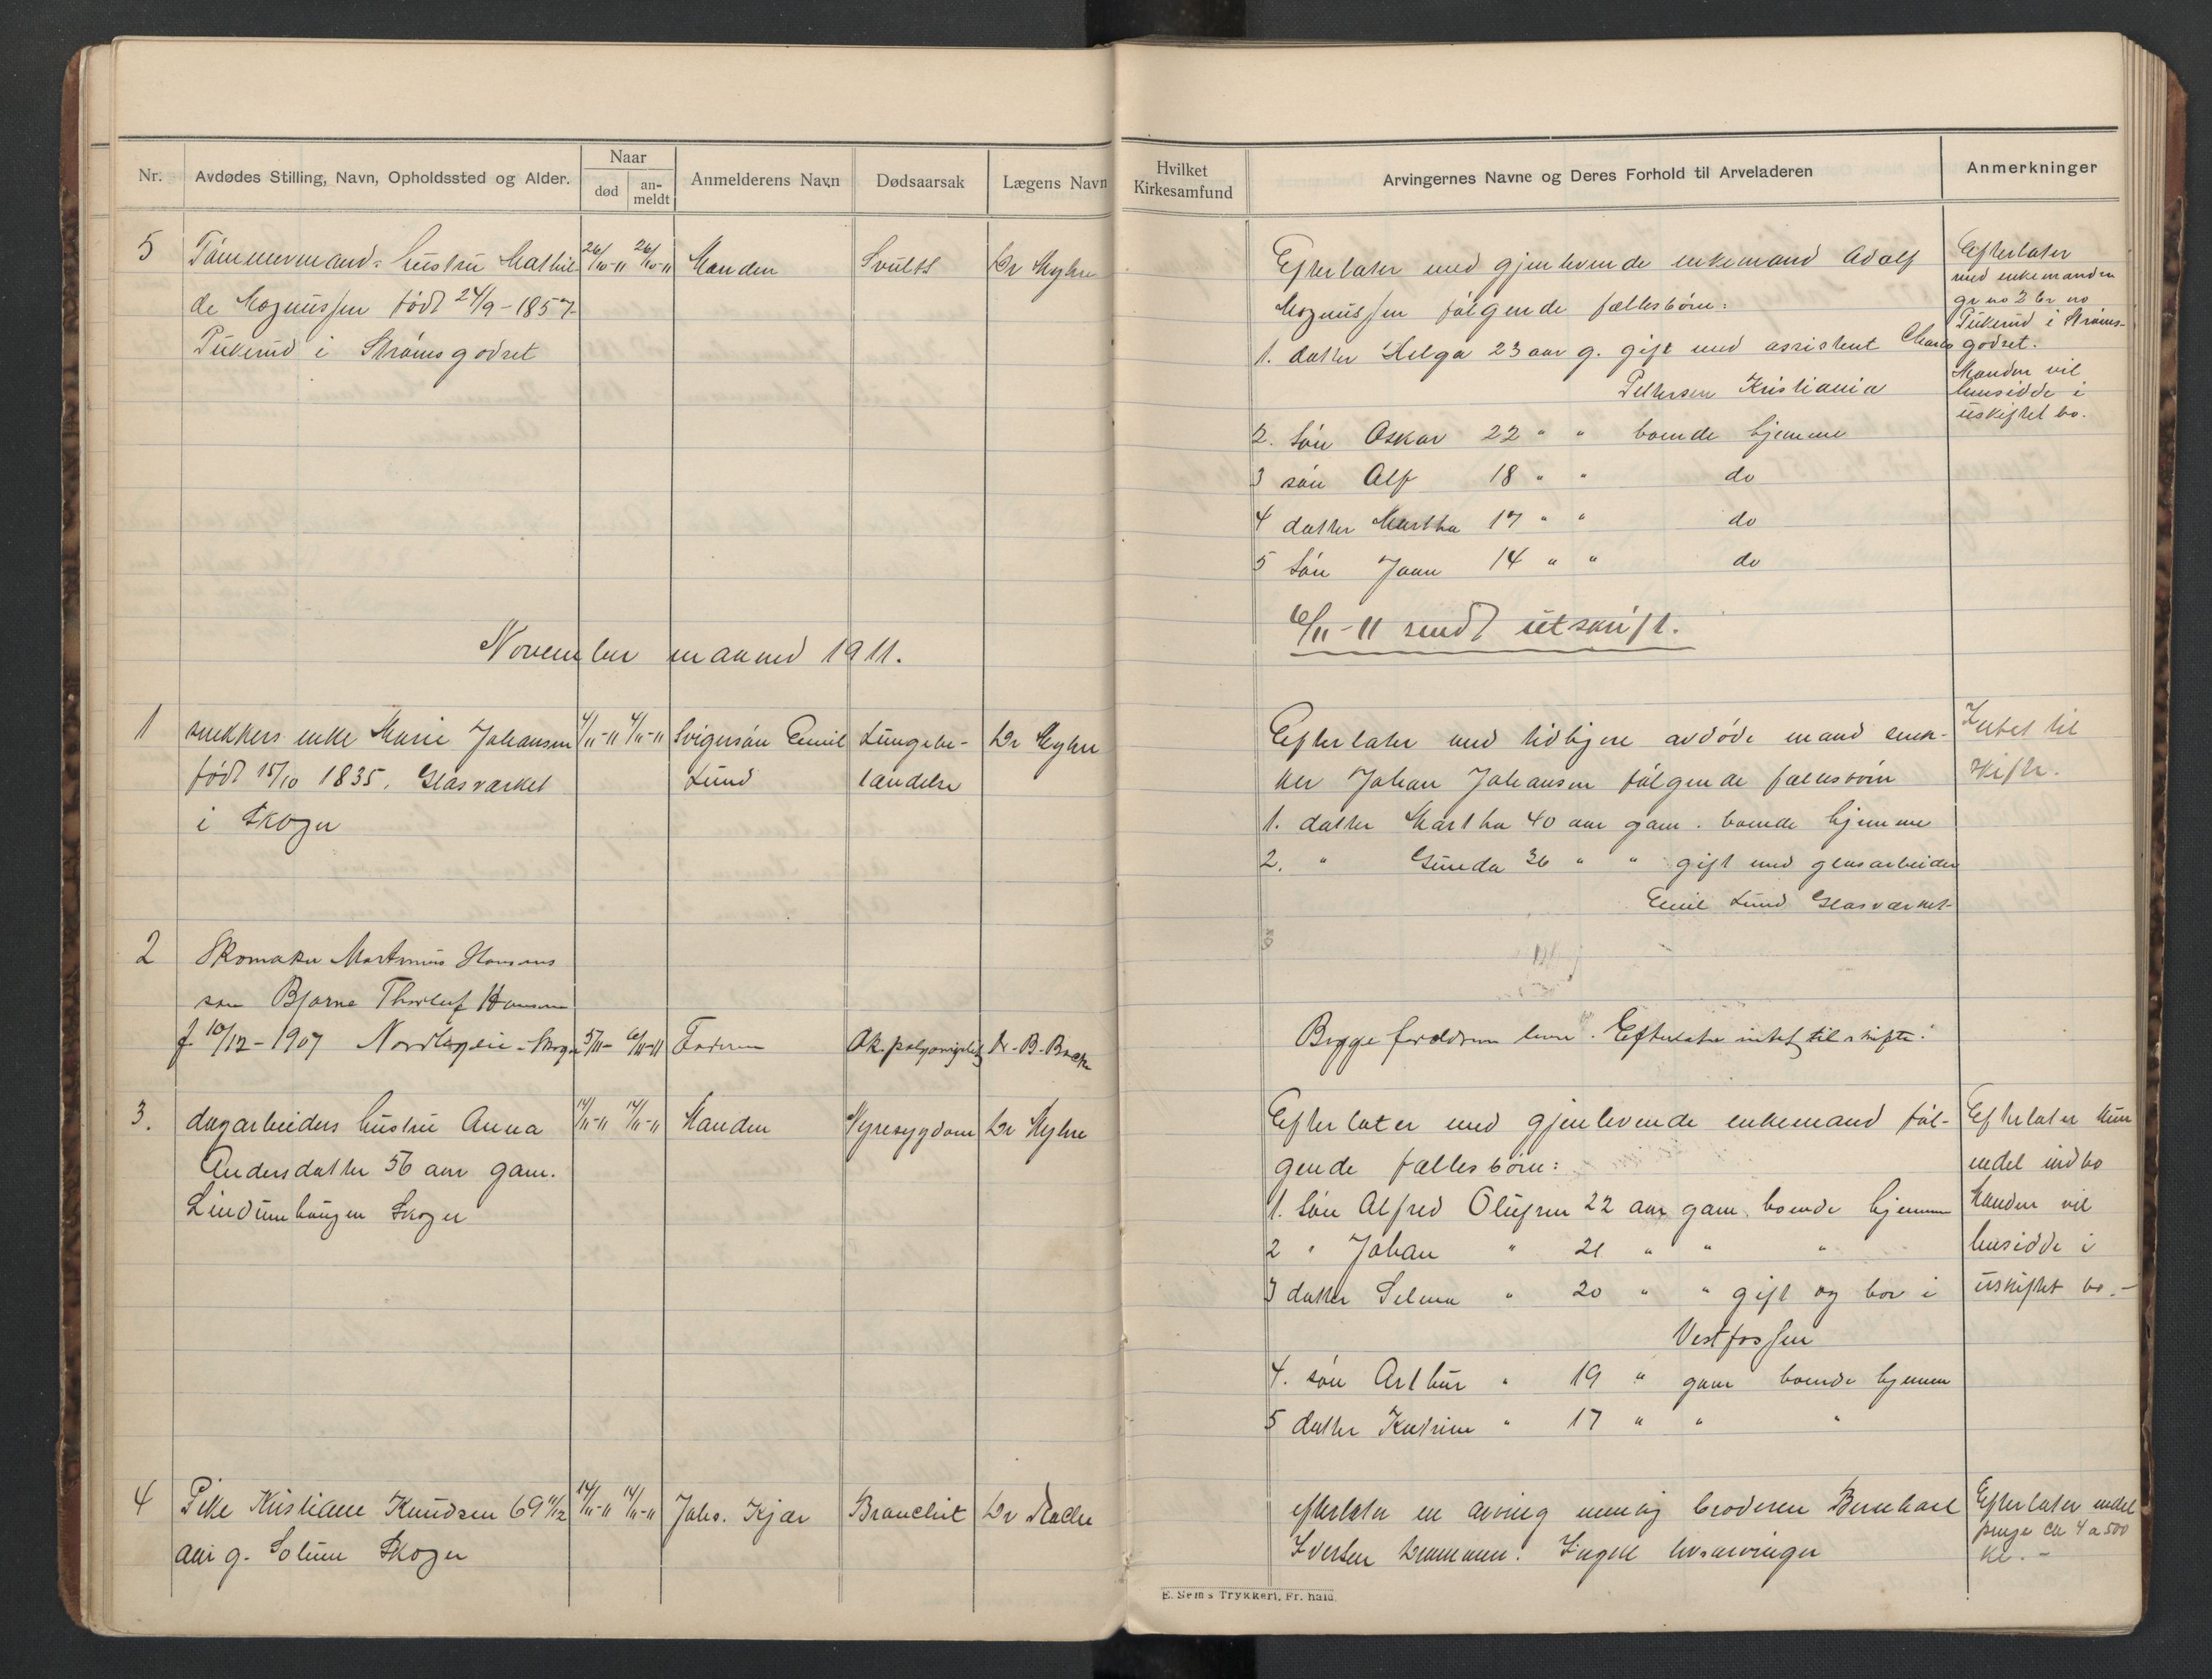 Nr.
Avdødes Stilling, Navn, Opholdssted og Alder.
Naar
død
an-
meldt
Anmelderens Navn
Dødsaarsak
Lægens Navn
Hvilket
Kirkesamfund
Arvingernes Navne og Deres Forhold til Arveladeren
Anmerkninger
5 Tømmermands hustru Mathil- 26/10-11 26/10-11 Manden Svulst Dr Myhre
de Magnussen født 24/9-1857
Pukerud i Strømsgodset
Efterlater med gjenlevende enkemand Adolf
Magnussen følgende fællesbørn:
1. datter Helga 23 aar g. gift med assistent Charles
Pettersen Kristiania
2. søn Oskar 22 " " boende hjemme
3 søn Alf 18 " " do
4 datter Martha 17 " " do
5 søn Jaan 14 " " do
6/11-11 sendt utskrift.
Efterlater
med enkemanden
gr no 2 br no
Pukerud i Strøms-
godset.
Manden vil
hensidde i
uskiftet bo.
November maaned 1911.
1 snekkers enke Marie Johansen 4/11-11 4/11-11 Svigersøn Emil Lungebe- Dr Myhre
født 15/10 1835. Glasværket Lund tændelse
i Skoger
Efterlater med tidligere avdøde mand snek-
ker Johan Johansen følgende fællesbørn
1. datter Martha 40 aar gam. boende hjemme
2. " Gunda 36 " " gift med glasarbeider
Emil Lund Glasværket
Intet til
skifte.
2 Skomaker Martinius Hansens
søn Bjarne Thorleif Hansen
f. 10/12-1907 Nordbyeie - Skoger 5/11- 6/11-11 Faderen Ak. Dr. B. Back
Begge forældrene lever. Efterlater intet til skifte.
3. dagarbeiders hustru Anna 14/11-11 14/11-11 Manden Nyresygdom Dr Myhre
Andersdatter 56 aar gam.
Lindumhaugen Skoger
Efterlater med gjenlevende enkemand føl-
gende fællesbørn:
1. søn Alfred Olufsen 22 aar gam. boende hjemme
2 " Johan " 21 " " "
3 datter Selma " 20 " " gift og bor i
Vestfossen
4. søn Arthur " 19 " gam boende hjemme
5 datter Katrine " 17 " " "
Efterlater kun
endel indbo
Manden vil
hensidde i
uskiftet bo.-
4 Pike Kristiane Knudsen 69 4/12 14/11-11 14/11-11 Johs. Kjær Bronchit Dr
aar g. Solum Skoger
efterlater en arving nemlig broderen Bernhard
Iversen Drammen. Ingen livsarvinger
Efterlater endel
penge ca 4 a 500
kr.-
E. Sem's Trykkeri, Fr.hald